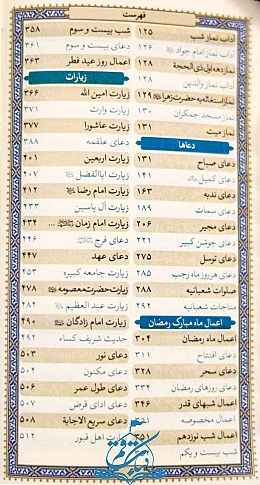 فهرست
آداب نماز شب ۱۲۵
آداب نماز امام جواد ۱۲۶
نماز دهه اول ذی‌الحجة ۱۲۸
آداب نماز والدین ۱۲۸
نماز استغاثه به حضرت زهرا ۱۲۹
نماز مسجد جمکران ۱۳۰
نماز میت ۱۳۱
دعاها
دعای صباح ۱۳۱
دعای کمیل ۱۴۱
دعای ندبه ۱۶۳
دعای سمات ۱۸۹
دعای مجیر ۲۰۶
دعای جوشن کبیر ۲۲۱
دعای توسل ۲۷۵
دعای هر روز ماه رجب ۲۸۵
صلوات شعبانیه ۲۸۸
مناجات شعبانیه ۲۹۲
اعمال ماه مبارک رمضان
اعمال ماه رمضان ۳۰۴
دعای افتتاح ۳۱۱
دعای سحر ۳۲۸
دعای روزهای رمضان ۳۳۴
اعمال شبهای قدر ۳۴۶
اعمال مخصوصه
اعمال شب نوزدهم ۳۵۱
شب بیست و یکم
شب بیست و سوم ۳۵۸
دعای بیست و سوم ۳۶۱
اعمال روز عید فطر ۳۶۳
زیارات
زیارت امین الله ۳۶۶
زیارت وارث ۳۷۱
زیارت عاشورا ۳۷۷
دعای علقمه ۳۸۸
زیارت اربعین ۴۰۱
زیارت اباالفضل ۴۰۷
زیارت امام رضا ۴۱۲
زیارت آل یاسین ۴۳۳
زیارت امام زمان ... ۴۳۴
دعای فرج ۴۴۶
دعای عهد ۴۴۷
زیارت جامعه کبیره ۴۵۳
زیارت حضرت معصومه ۴۷۸
زیارت عبد العظیم ۴۸۴
زیارت امام زادگان ۴۹۰
حدیث شریف کساء ۴۹۲
دعای نور ۵۰۳
دعای مکنون ۵۰۴
دعای طول عمر ۵۰۶
دعای ادای قرض ۵۰۷
دعای سریع الاجابة ۵۰۸
زیارت اهل قبور ۵۱۲